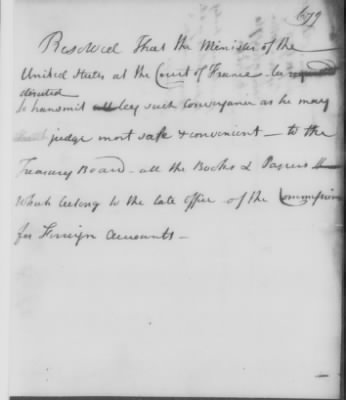 679
Resolved That the Minister of the
United States at the Court of France - be
directed
to transmit by such conveyance as he may
judge most safe & convenient - to the
Treasury Board - all the Books & Papers
which belong to the late office of the Commission
for Foreign Accounts -